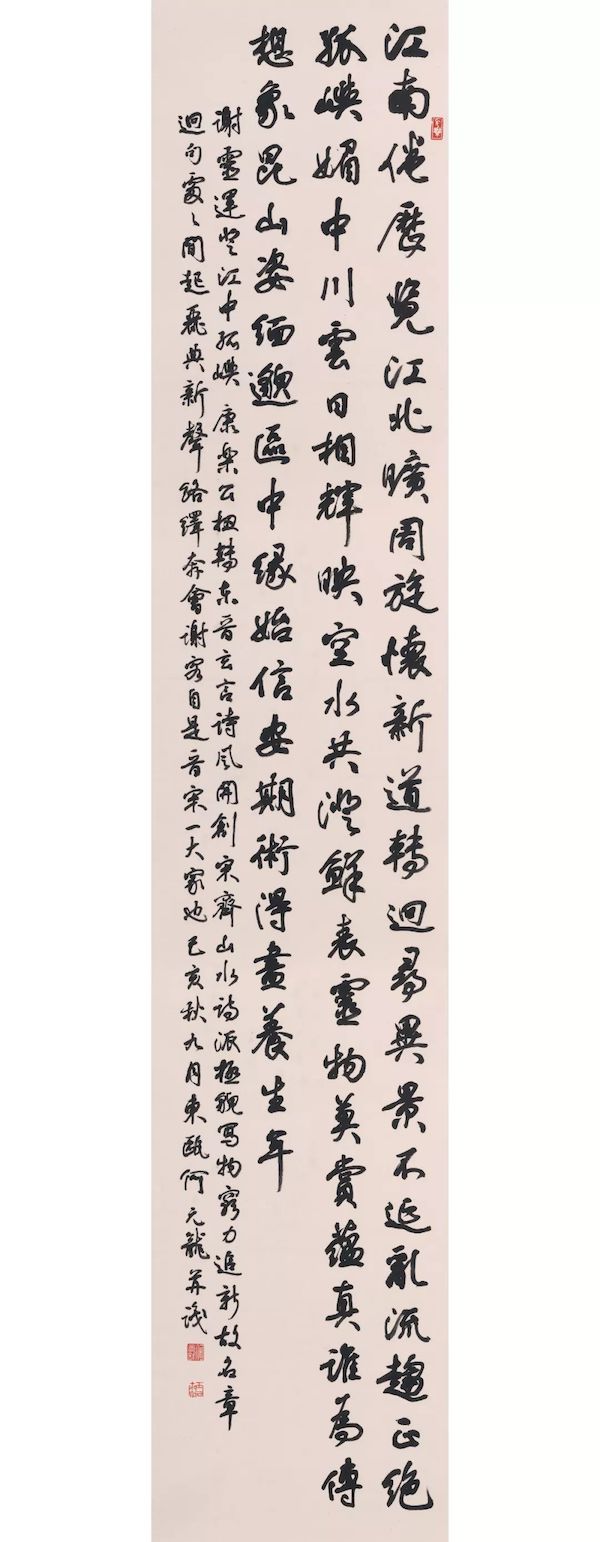 江南倦歷覽江北曠周旋懷新道轉迥尋異景不延亂流趨正絕
孤嶼媚中川雲日相輝映空水共澄鮮表靈物莫賞蘊真誰為傳
想象昆山姿緬邈區中緣始信安期術得盡養生年
謝靈運登江中孤嶼 康樂公扭轉东晉玄言詩風開創宋齊山水詩派極貌寫物窮力追新故名章
迥句處々間起麗典新聲絡繹奔會謝客自是晉宋一大家也己亥秋九月東甌何元龍并識